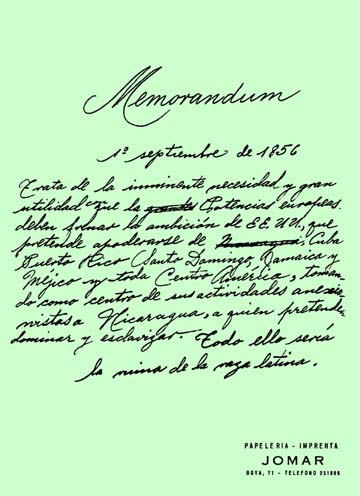 Memorandum
1º septiembre de 1856
Trata de la imminente necesidad y gran
utilidad que la Potencias europeas
deben frenar la ambición de EE. UU., que
pretende apoderarse de Cuba
Puerto Rico Santo Domingo, Jamaica y
Méjico y toda Centro América, toman-
do como centro de sus actividades anexio-
nistas a Nicaragua, a quien pretenden
dominar y esclavizar. Todo ello sería
la ruina de la raza latina.
PAPELERIA - IMPRENTA
JOMAR
GOYA, 71 - TELEFONO